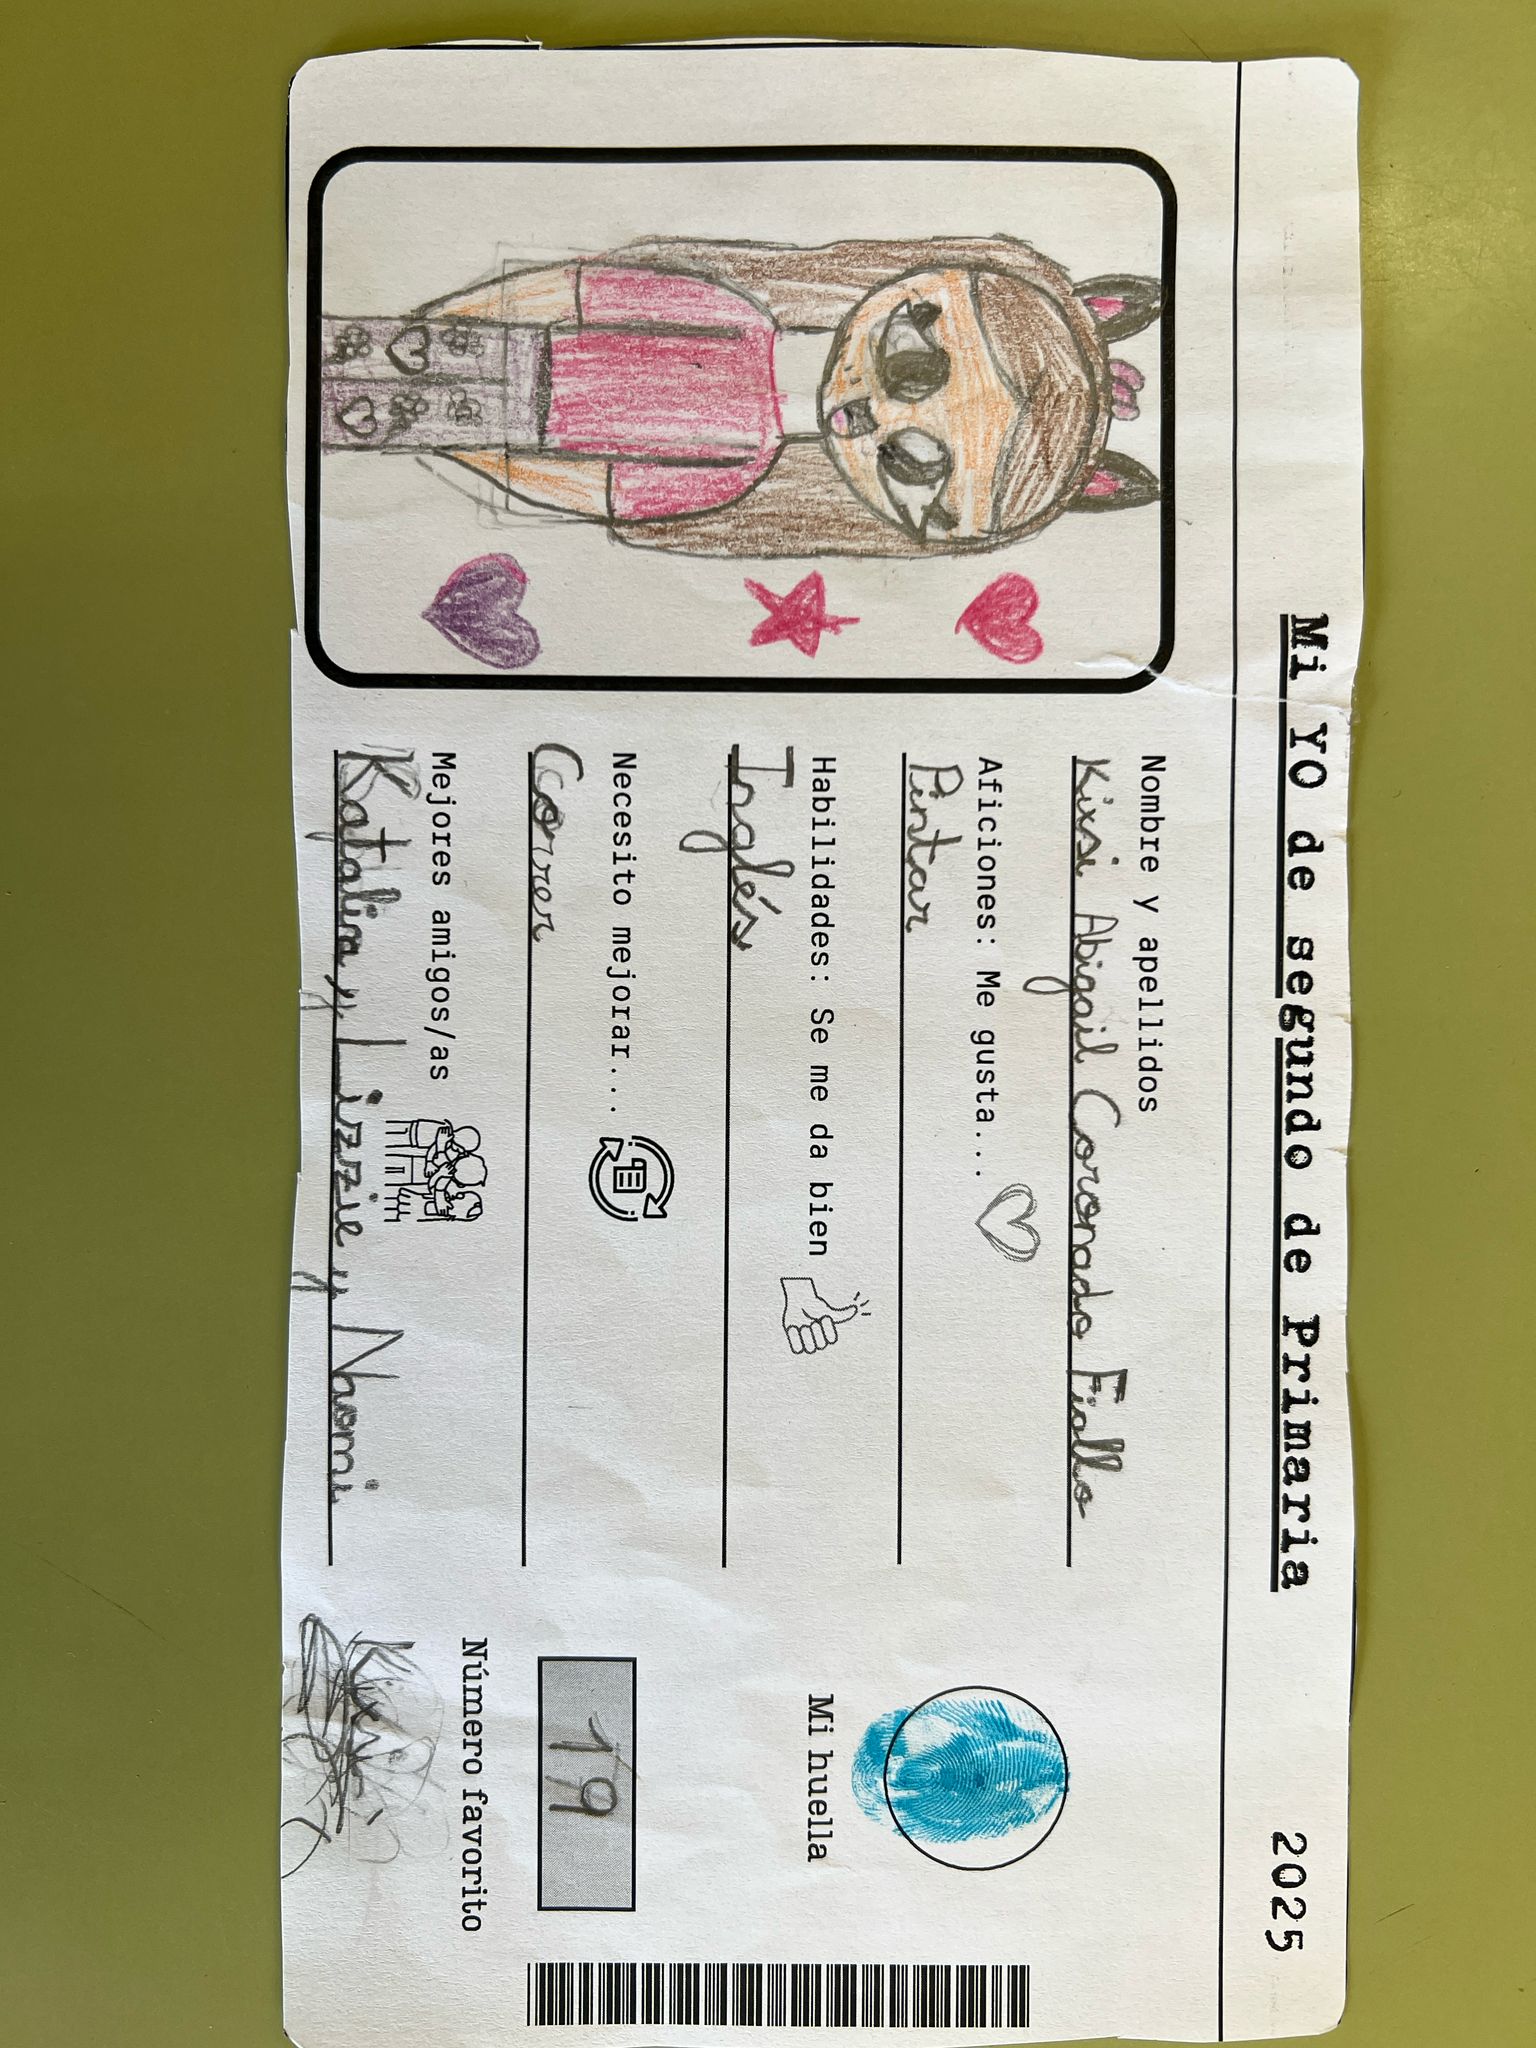 Mi YO de segundo de Primaria
2025
Nombre y apellidos
Kixsi Abigail Coronado Fiallo
Aficiones: Me gusta...
Pintar
Habilidades: Se me da bien
Inglés
Necesito mejorar...
Correr
Mejores amigos/as
Katalin y Lizzie y Naomi
Mi huella
19
Número favorito
Kixsi